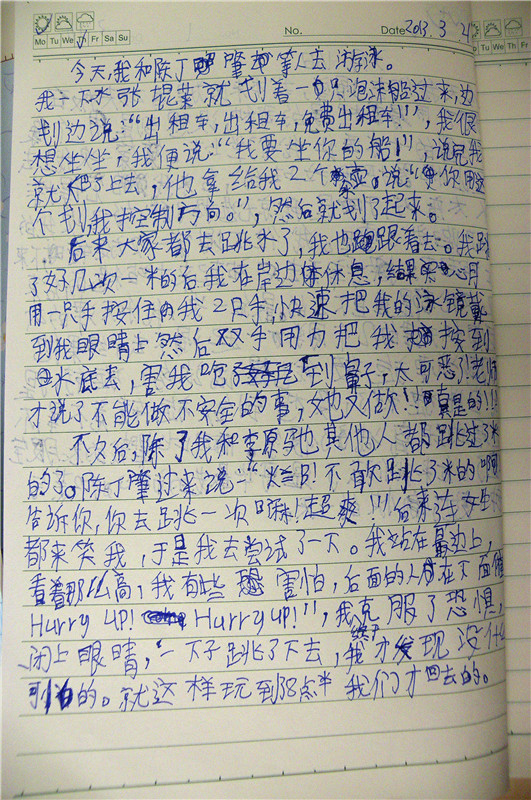 Mo Tu We Th Fr Sa Su No. Date 2013. 3
今天,我和陈丁肇等人去游泳。
我一下水张琨荣就划着一只泡沫船过来,边
划边说:“出租车,出租车,免费出租车!!”,我很
想坐坐,我便说:“我要坐你的船!”,说完我
就爬了上去,他拿给我2个说:“你用这
个划我控制方向。”,然后就划了起来。
后来大家都去跳水了,我也跟着去。我跳
了好几次一米的后我在岸边休息,结果
用一只手按住我2只手,快速把我的泳镜戴
到我眼睛上然后双手用力把我按到
水底去,害我呛到鼻子,太可恶了!老师
才说了不能做不安全的事,她又做!真是的!!!
不久后,除了我和李原驰其他人都跳过了米
的了。陈丁肇过来说:“B!不敢跳了米的啊
告诉你,你去跳一次嘛!超爽!!!后来连女生
都来笑我,于是我去尝试了一下。我站在最边上,
看着那么高,我有些害怕,后面的人在下面催
Hurry up! Hurry up!”,我克服了恐惧,
闭上眼睛,一下子跳了下去,我才发现没什
可怕的。就这样玩到8点半我们才回去的。